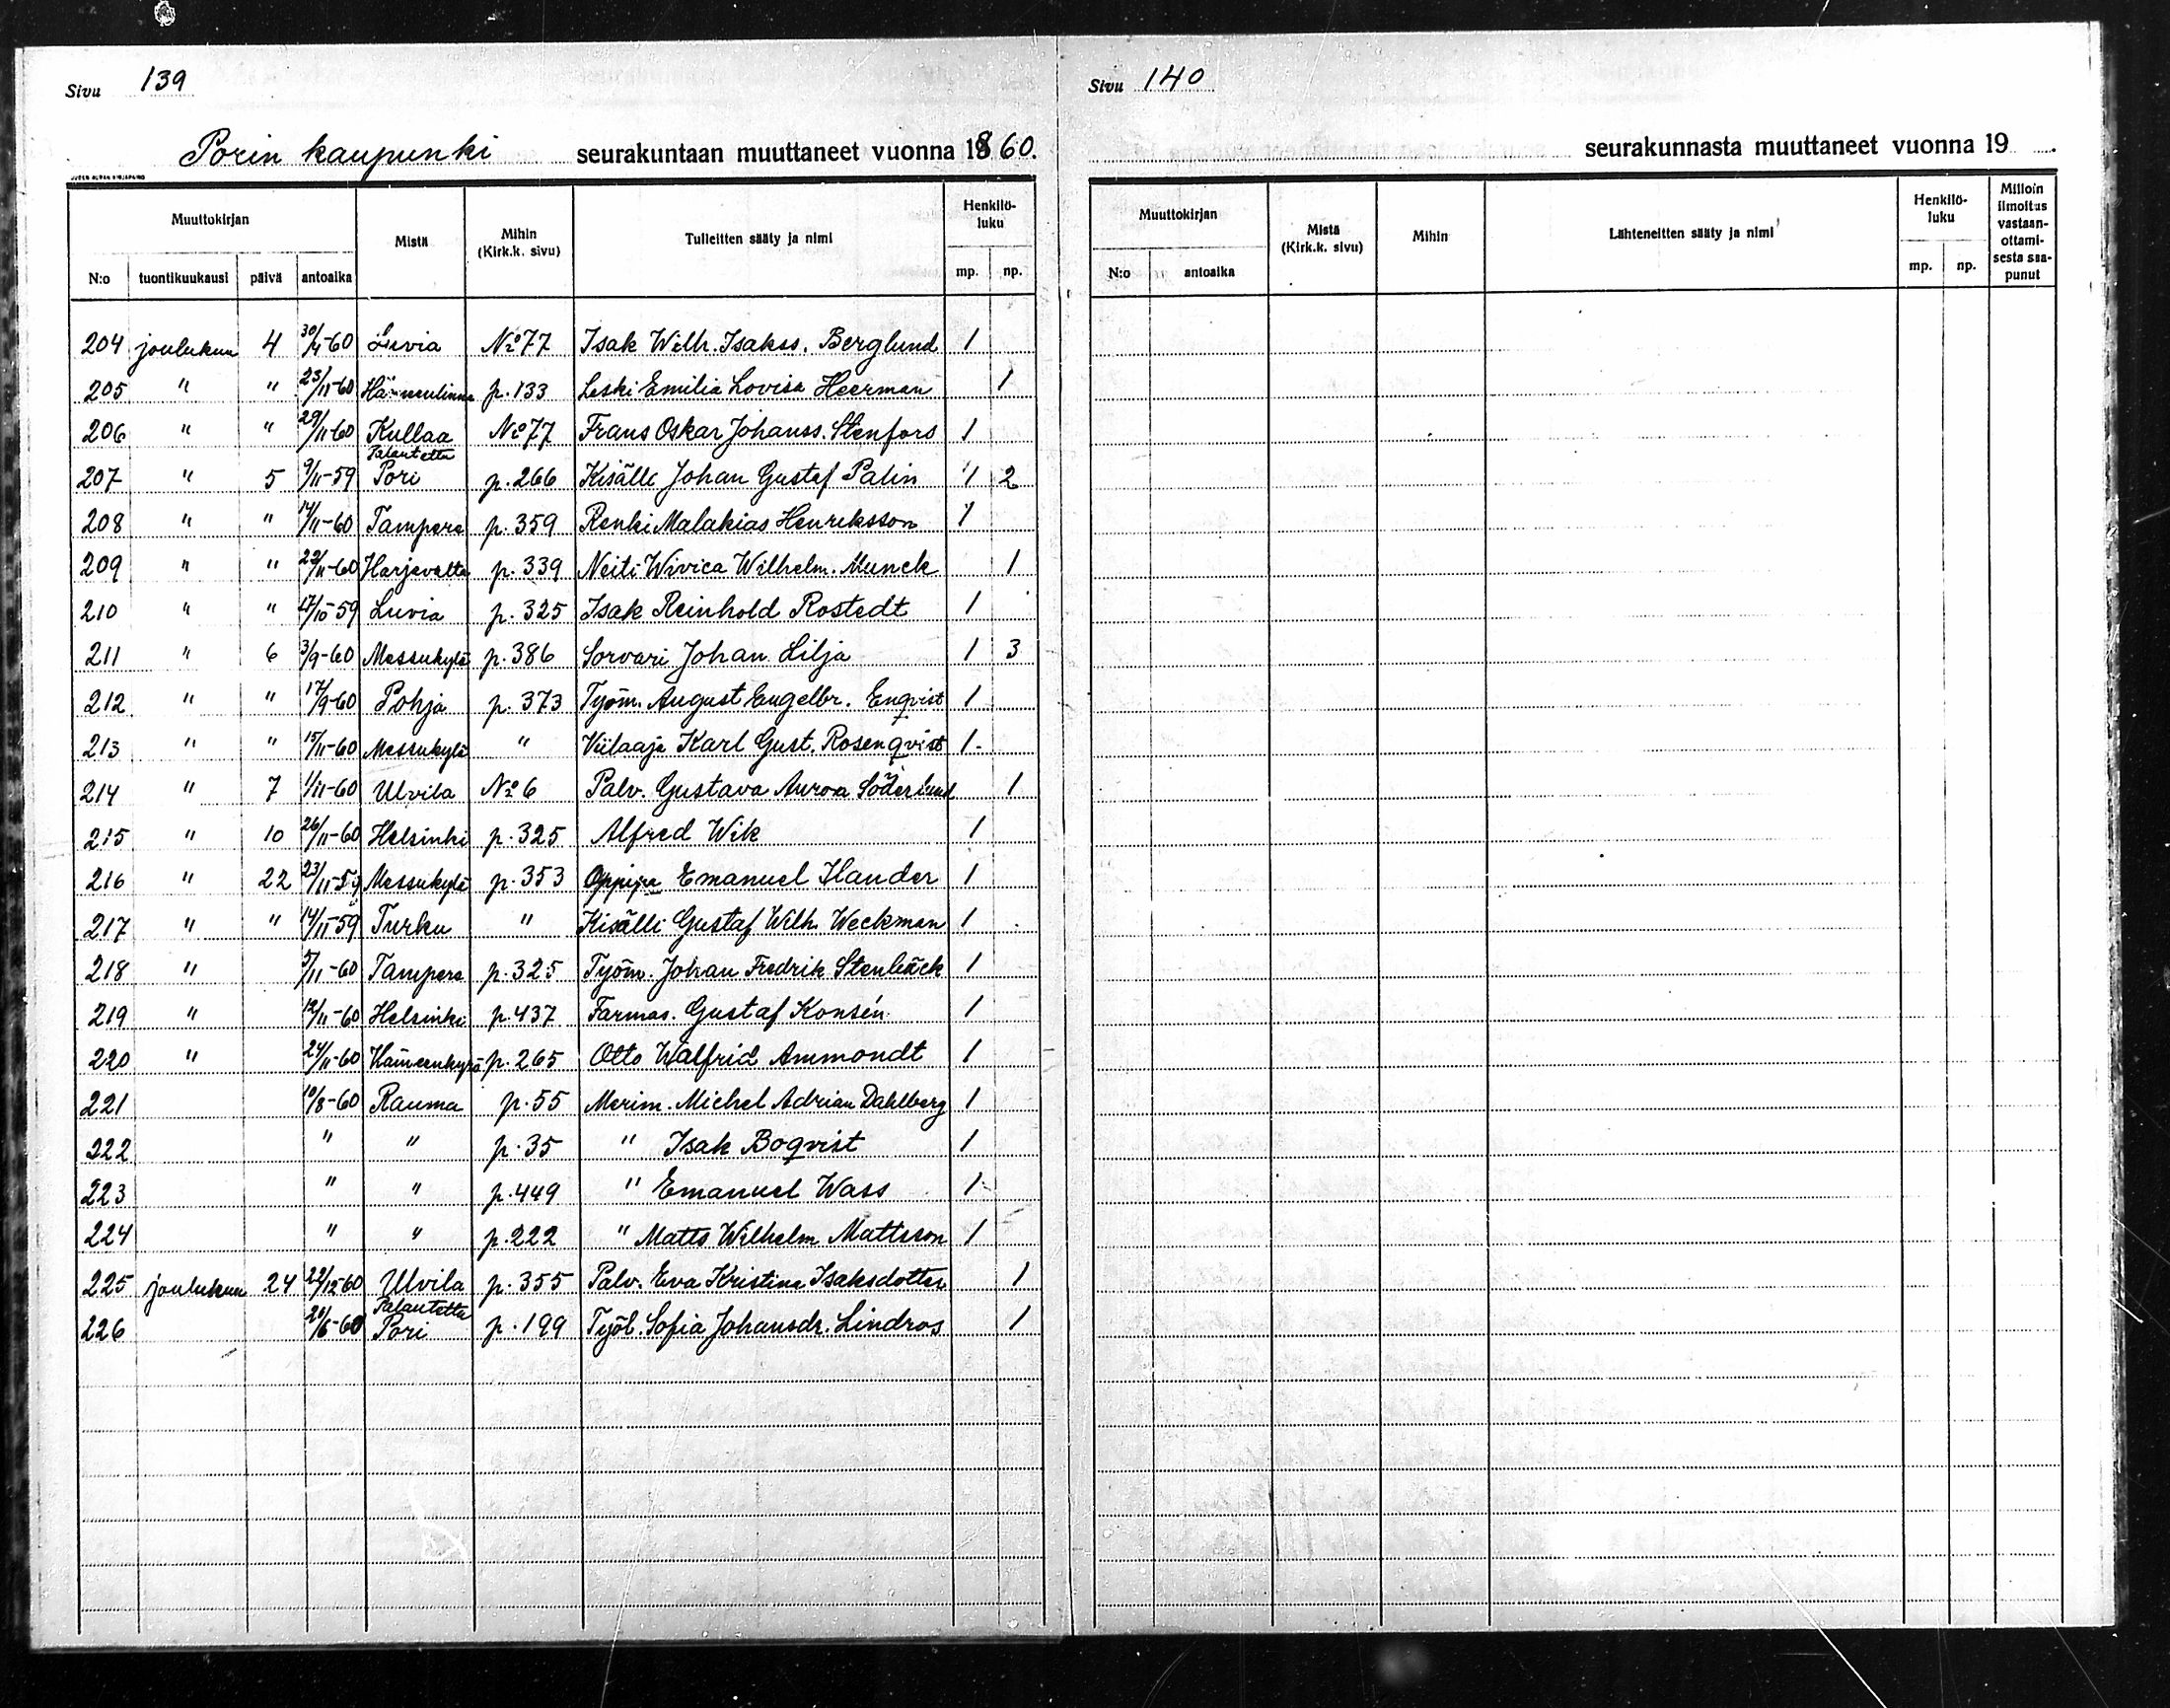 Sivu 139
Porin kaupunki seurakuntaan muuttaneet vuonna 1860.
Muuttokirjan
N:o tuontikuukausi päivä antoaika Mistä Mihin (Kirk.k. sivu) Tulleitten sääty ja nimi Henkilö-luku mp. np.
204 joulukuu 4 30/4-60 Luvia No 77 Isak Wilh. Isakss. Berglund 1
205 " " 23/11-60 Hämeenlinna p. 133 Leski Emilia Lovisa Heerman 1
206 " " 29/11-60 Kullaa No 77 Frans Oskar Johanss. Stenfors 1
Palautettu
207 " 5 9/11-59 Pori p. 266 Kisälli Johan Gustaf Palin 1 2
208 " " 14/11-60 Tampere p. 359 Renki Malakias Henriksson 1
209 " " 22/11-60 Harjavalta p. 339 Neiti Wivica Wilhelm. Munck 1
210 " " 17/10-59 Luvia p. 325 Isak Reinhold Rostedt 1
211 " 6 3/9-60 Messukylä p. 386 Sorvari Johan Lilja 1 3
212 " " 17/9-60 Pohja p. 373 Työm. August Engelbr. Enqvist 1
213 " " 15/11-60 Messukylä " Viilaaja Karl Gust. Rosenqvist 1
214 " 7 1/11-60 Ulvila No 6 Palv. Gustava Aurora Söderlund 1
215 " 10 26/11-60 Helsinki p. 325 Alfred Wik 1
216 " 22 23/11-59 Messukylä p. 353 Emanuel Ilander 1
217 " " 14/11-59 Turku " Kisälli Gustaf Wilh. Weckman 1
218 " 5/11-60 Tampere p. 325 Työm. Johan Fredrik Stenbäck 1
219 " 12/11-60 Helsinki p. 437 Farmas. Gustaf Konsén 1
220 " 24/11-60 Hämeenkyrö p. 265 Otto Walfrid Ammondt 1
221 10/8-60 Rauma p. 55 Merim. Michel Adrian Dahlberg 1
222 " " p. 35 " Isak Boqvist 1
223 " " p. 449 " Emanuel Wass 1
224 " " p. 222 " Matts Wilhelm Mattsson 1
225 joulukuu 24 22/12-60 Ulvila p. 355 Palv. Eva Kristina Isaksdotter 1
Palautettu
226 20/6-60 Pori p. 199 Työl. Sofia Johansdr. Lindros 1
Sivu 140
seurakunnasta muuttaneet vuonna 19 .
Muuttokirjan
N:o antoaika Mistä (Kirk.k. sivu) Mihin Lähteneitten sääty ja nimi Henkilö-luku mp. np. Milloin ilmoitus vastaan-ottami-sesta saa-punut